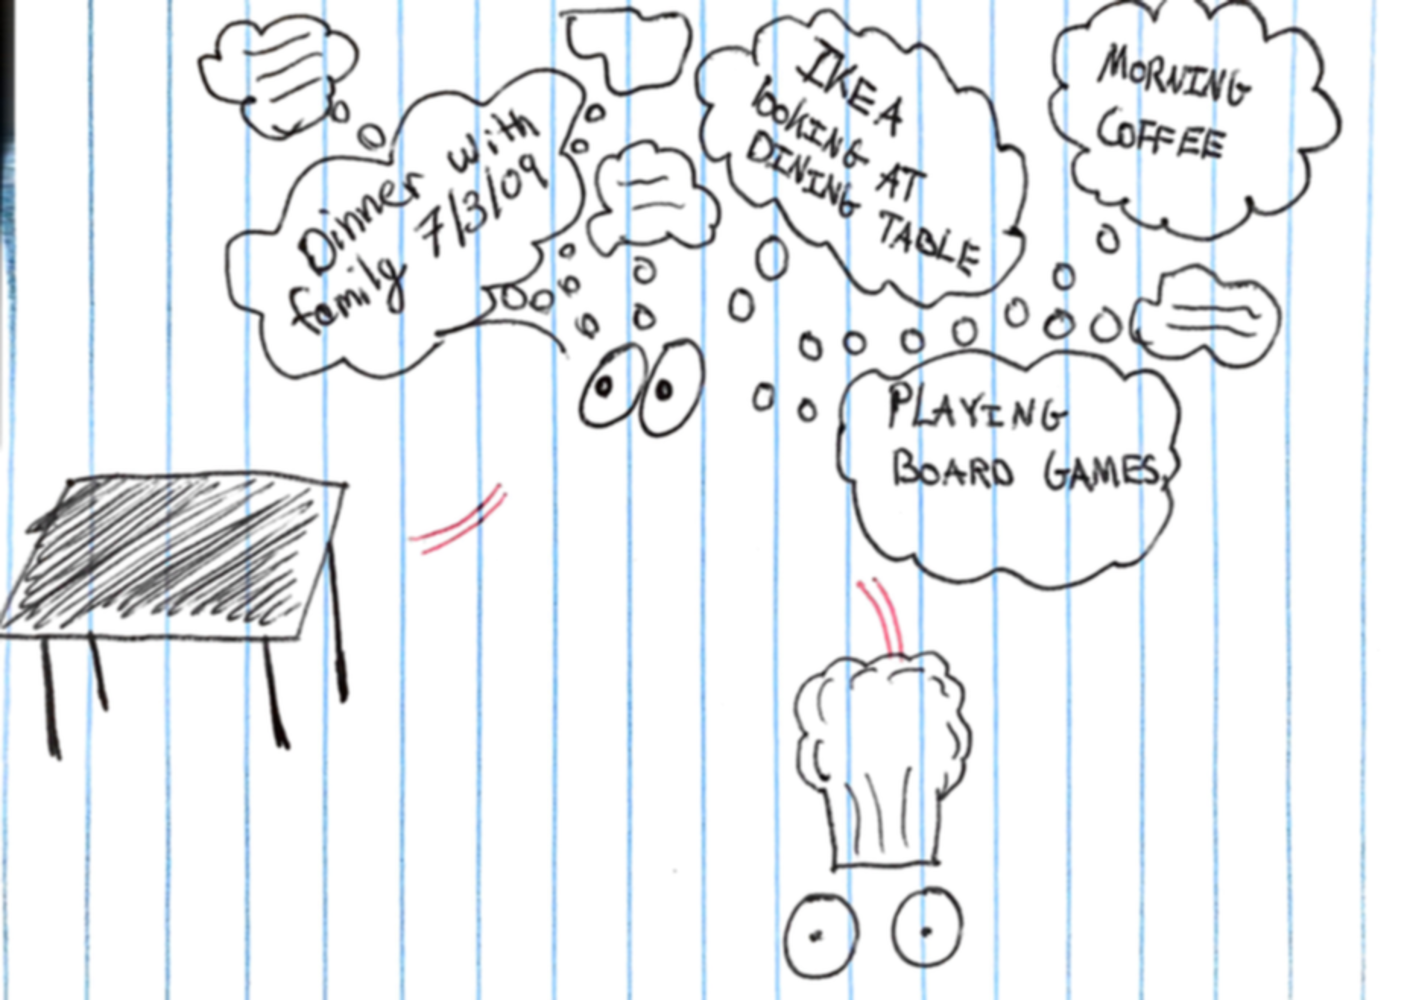 Dinner with
family 7/3/09
IKEA
LOOKING AT
DINING TABLE
MORNING
COFFEE
PLAYING
BOARD GAMES.